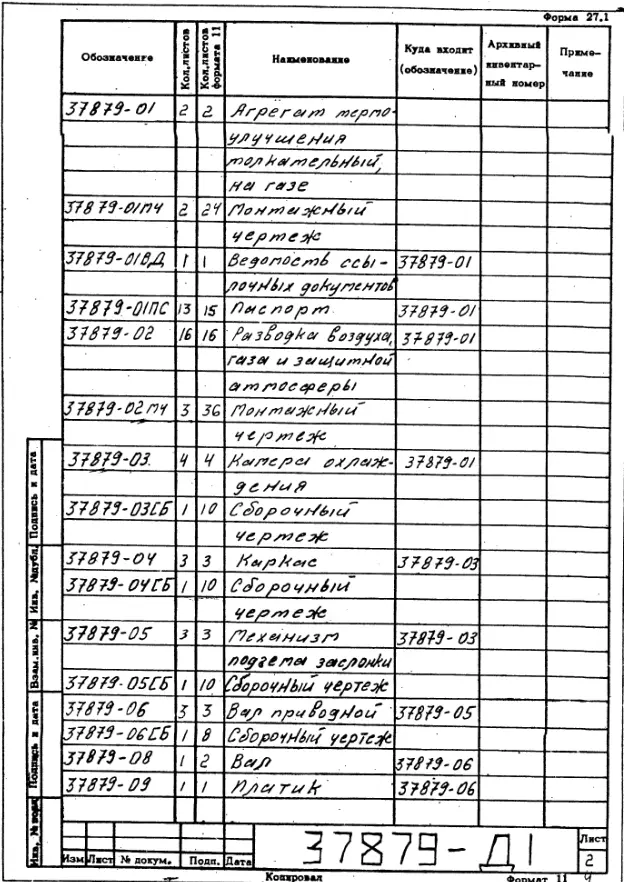 Форма 27.1
Обозначение Кол.листов Кол.листов формата 11 Наименование Куда входит (обозначение) Архивный инвентарный номер Примечание
37879-01 2 2 Агрегат термо-
улучшения
толкательный,
на газе
37879-01МЧ 2 24 Монтажный
чертеж
37879-01ВД 1 1 Ведомость ссы- 37879-01
лочных документов
37879-01ПС 13 15 Паспорт 37879-01
37879-02 16 16 Разводка воздуха, 37879-01
газа и защитной
атмосферы
37879-02МЧ 3 36 Монтажный
чертеж
37879-03. 4 4 Камера охлаж- 37879-01
дения
37879-03СБ 1 10 Сборочный
чертеж
37879-04 3 3 Каркас 37879-03
37879-04СБ 1 10 Сборочный
чертеж
37879-05 3 3 Механизм 37879-03
подъема заслонки
37879-05СБ 1 10 Сборочный чертеж
37879-06 3 3 Вал приводной 37879-05
37879-06СБ 1 8 Сборочный чертеж
37879-08 1 2 Вал 37879-06
37879-09 1 1 Платик 37879-06
Подпись и дата
Инв. №дубл.
Взам.инв. №
Подпись и дата
Инв. №
Изм Лист № докум. Подп. Дата
37879-Д1
Лист
2
Копировал
Формат 11
4